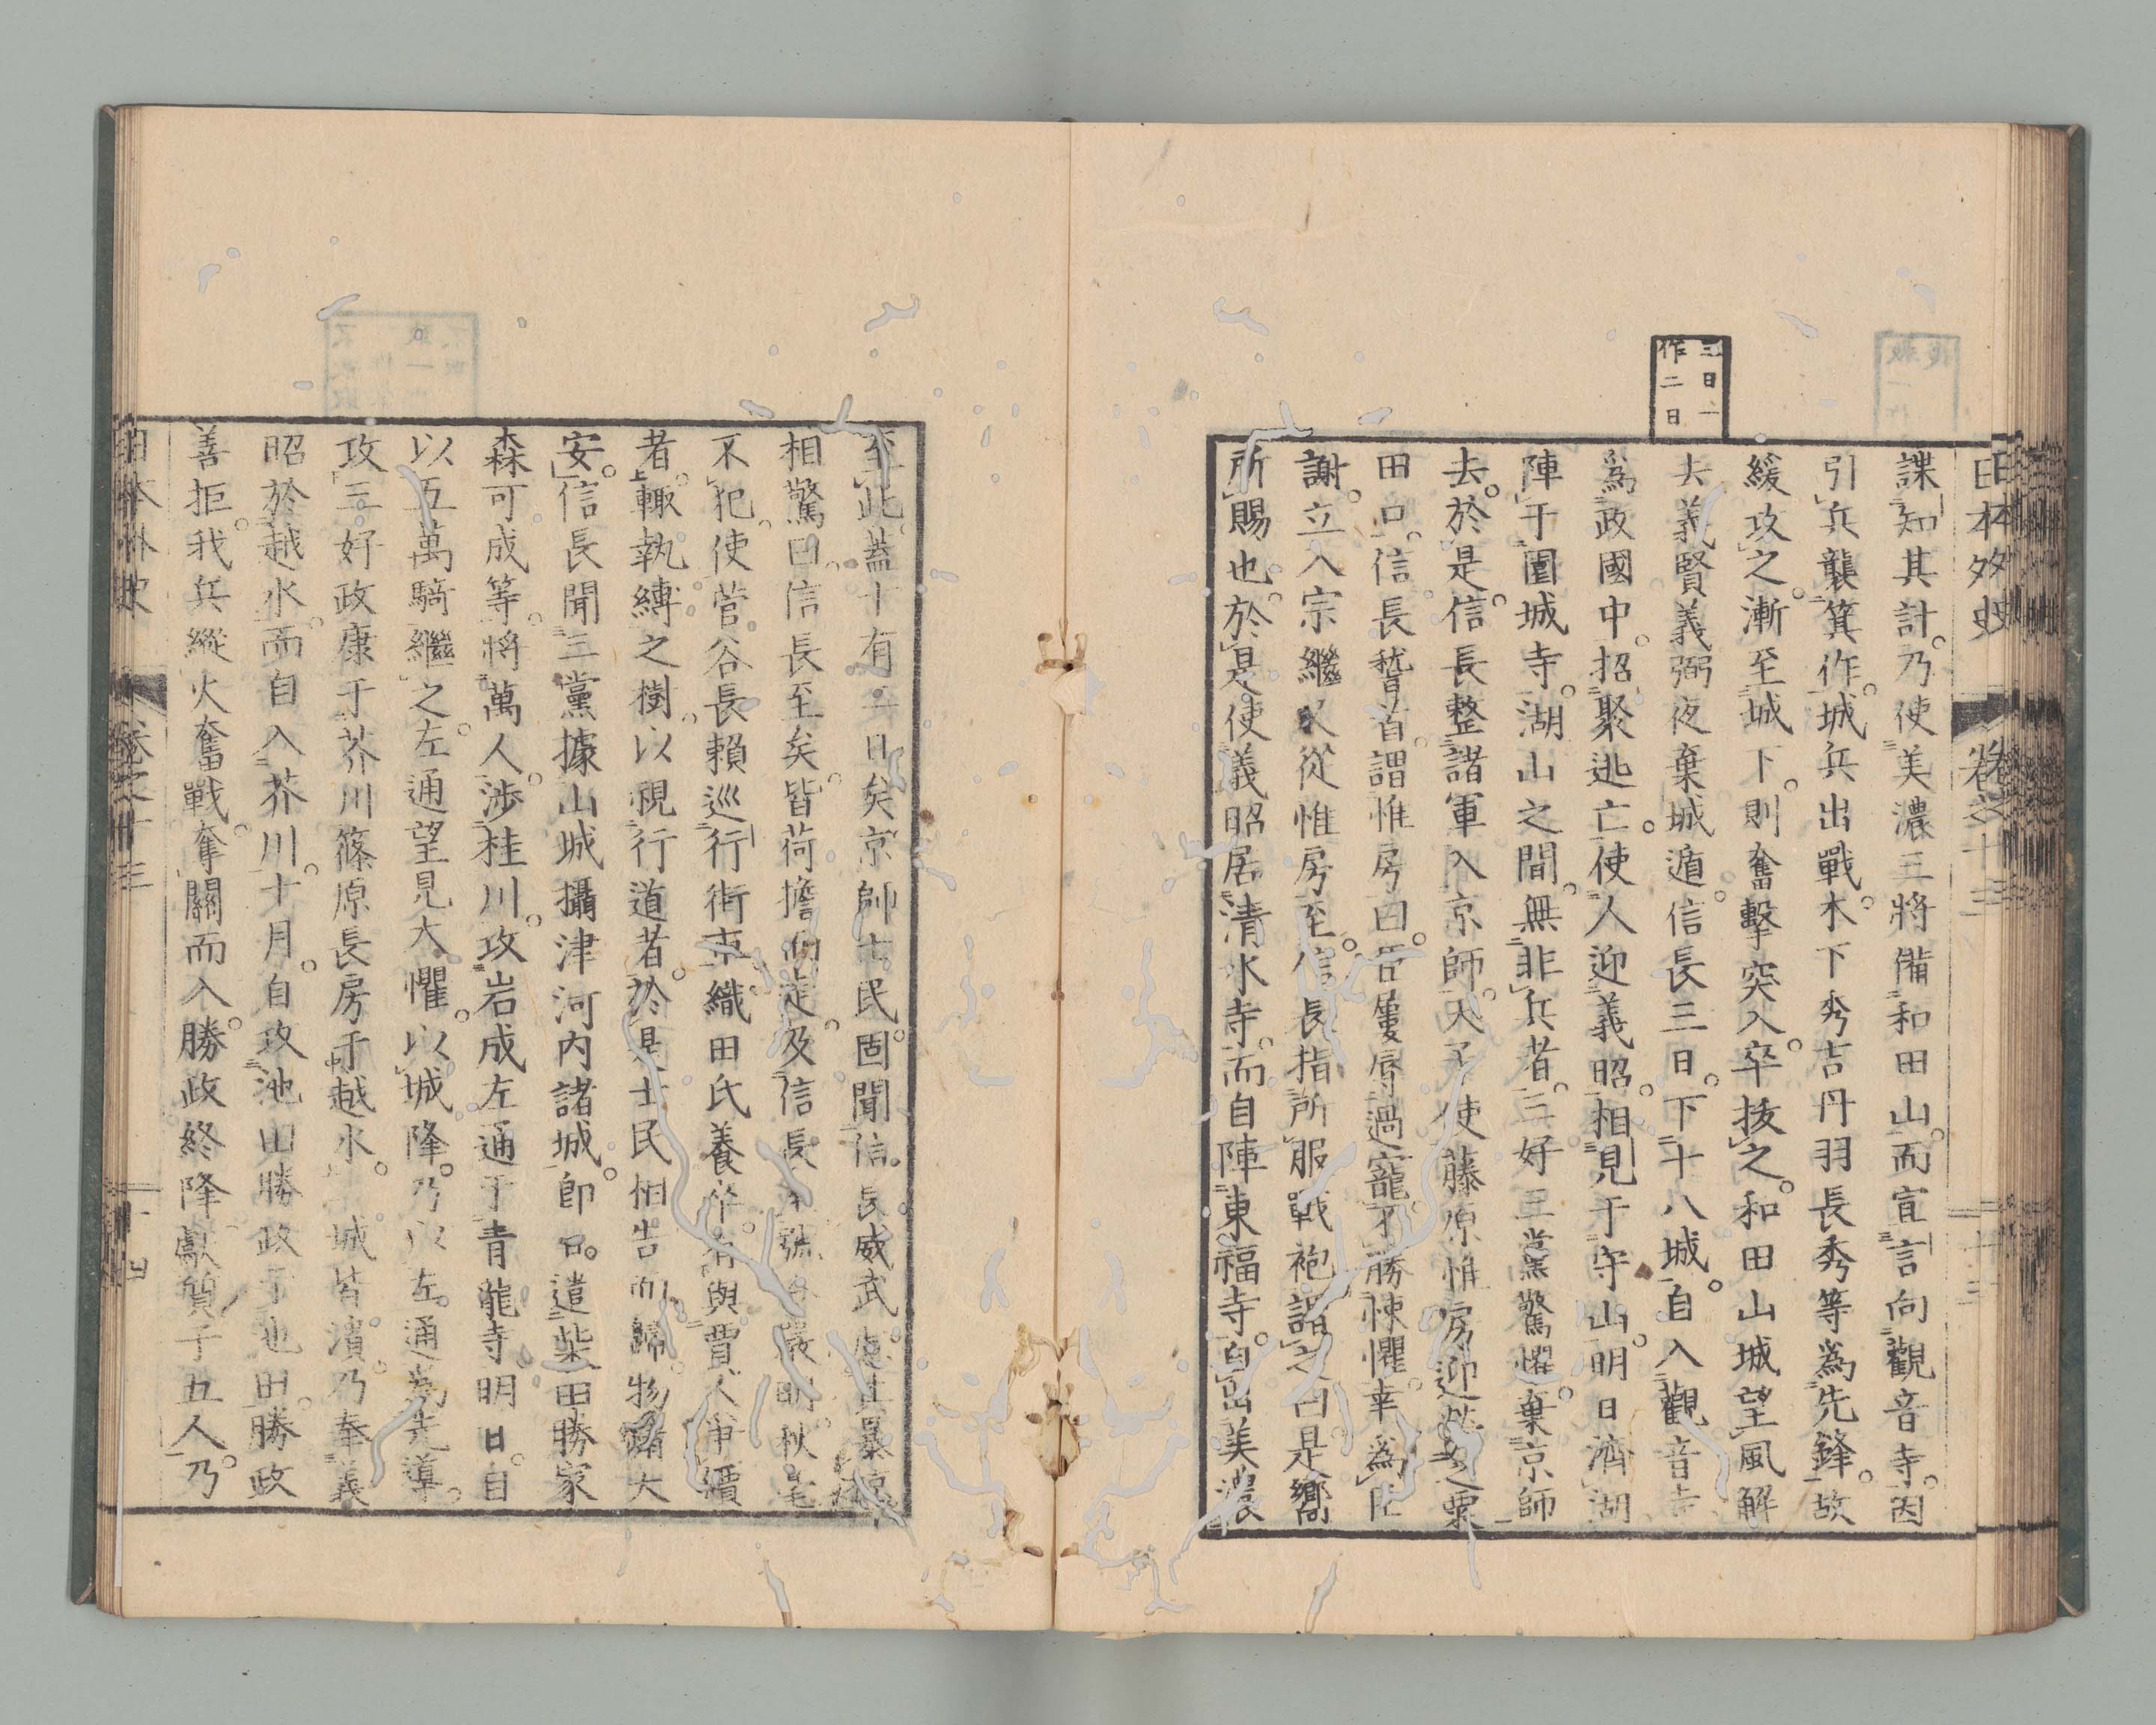 日本外史 卷之十三 十三
三日一
作二日
諜知其計。乃使美濃三將備和田山。而宣言向觀音寺。因
引兵襲箕作。城兵出戰。木下秀吉丹羽長秀等爲先鋒。故
緩攻之。漸至城下。則奮擊突入。卒拔之。和田山城望風解
去。義賢義弼夜棄城遁。信長三日。下十八城。自入觀音寺
爲政國中。招聚逃亡。使人迎義昭。相見于守山。明日濟湖
陣于園城寺。湖山之間。無非兵者。三好三黨驚懼。棄京師
去。於是。信長整諸軍入京師。天子使藤原惟房迎
田口。信長稽首。謂惟房曰。臣屢辱過寵。不勝悚懼。幸爲
謝。立入宗繼從惟房至。信長指所服戰袍。謂之曰。是嚮
所賜也。於是使義昭居清水寺。而自陣東福寺。自出美濃
至此。蓋十有三日矣。京師士民。固聞信長威武。
相驚曰。信長至矣。皆荷擔而走。及信長嚴明。秋毫
不犯。使菅谷長賴巡行街。織田氏養卒。有與賈人爭價
者。輙執縛之樹。以視行道者。於是士民相告而歸。物情大
安。信長聞三黨據山城攝津河內諸城。卽日。遣柴田勝家
森可成等。將萬人。涉桂川。攻岩成左通于青龍寺。明日。自
以五萬騎繼之。左通望見大懼。以城降。乃以左通爲先導。
攻三好政康于芥川篠原長房于越水。城皆潰。乃奉義
昭於越水。而自入芥川。十月。自攻池田勝政于池田。勝政
善拒。我兵縱火奮戰。奪關而入。勝政終降。獻質子五人。乃
日本外史 卷之十三 十四